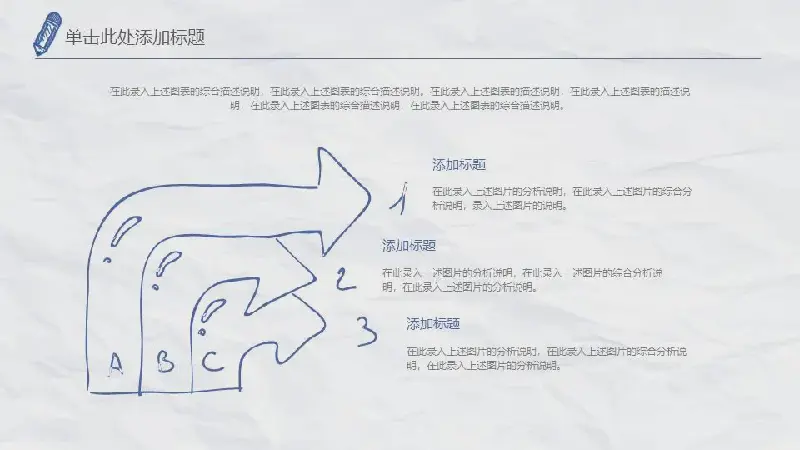 单击此处添加标题
在此录入上述图表的综合描述说明，在此录入上述图表的综合描述说明。在此录入上述图表的描述说明，在此录入上述图表的描述说
明，在此录入上述图表的综合描述说明，在此录入上述图表的综合描述说明。
添加标题
1
在此录入上述图片的分析说明，在此录入上述图片的综合分
析说明，录入上述图片的说明。
添加标题
2
在此录入 述图片的分析说明，在此录入 述图片的综合分析说
明，在此录入上述图片的分析说明。
3
添加标题
在此录入上述图片的分析说明，在此录入上述图片的综合分析说
明，在此录入上述图片的分析说明。
A B C